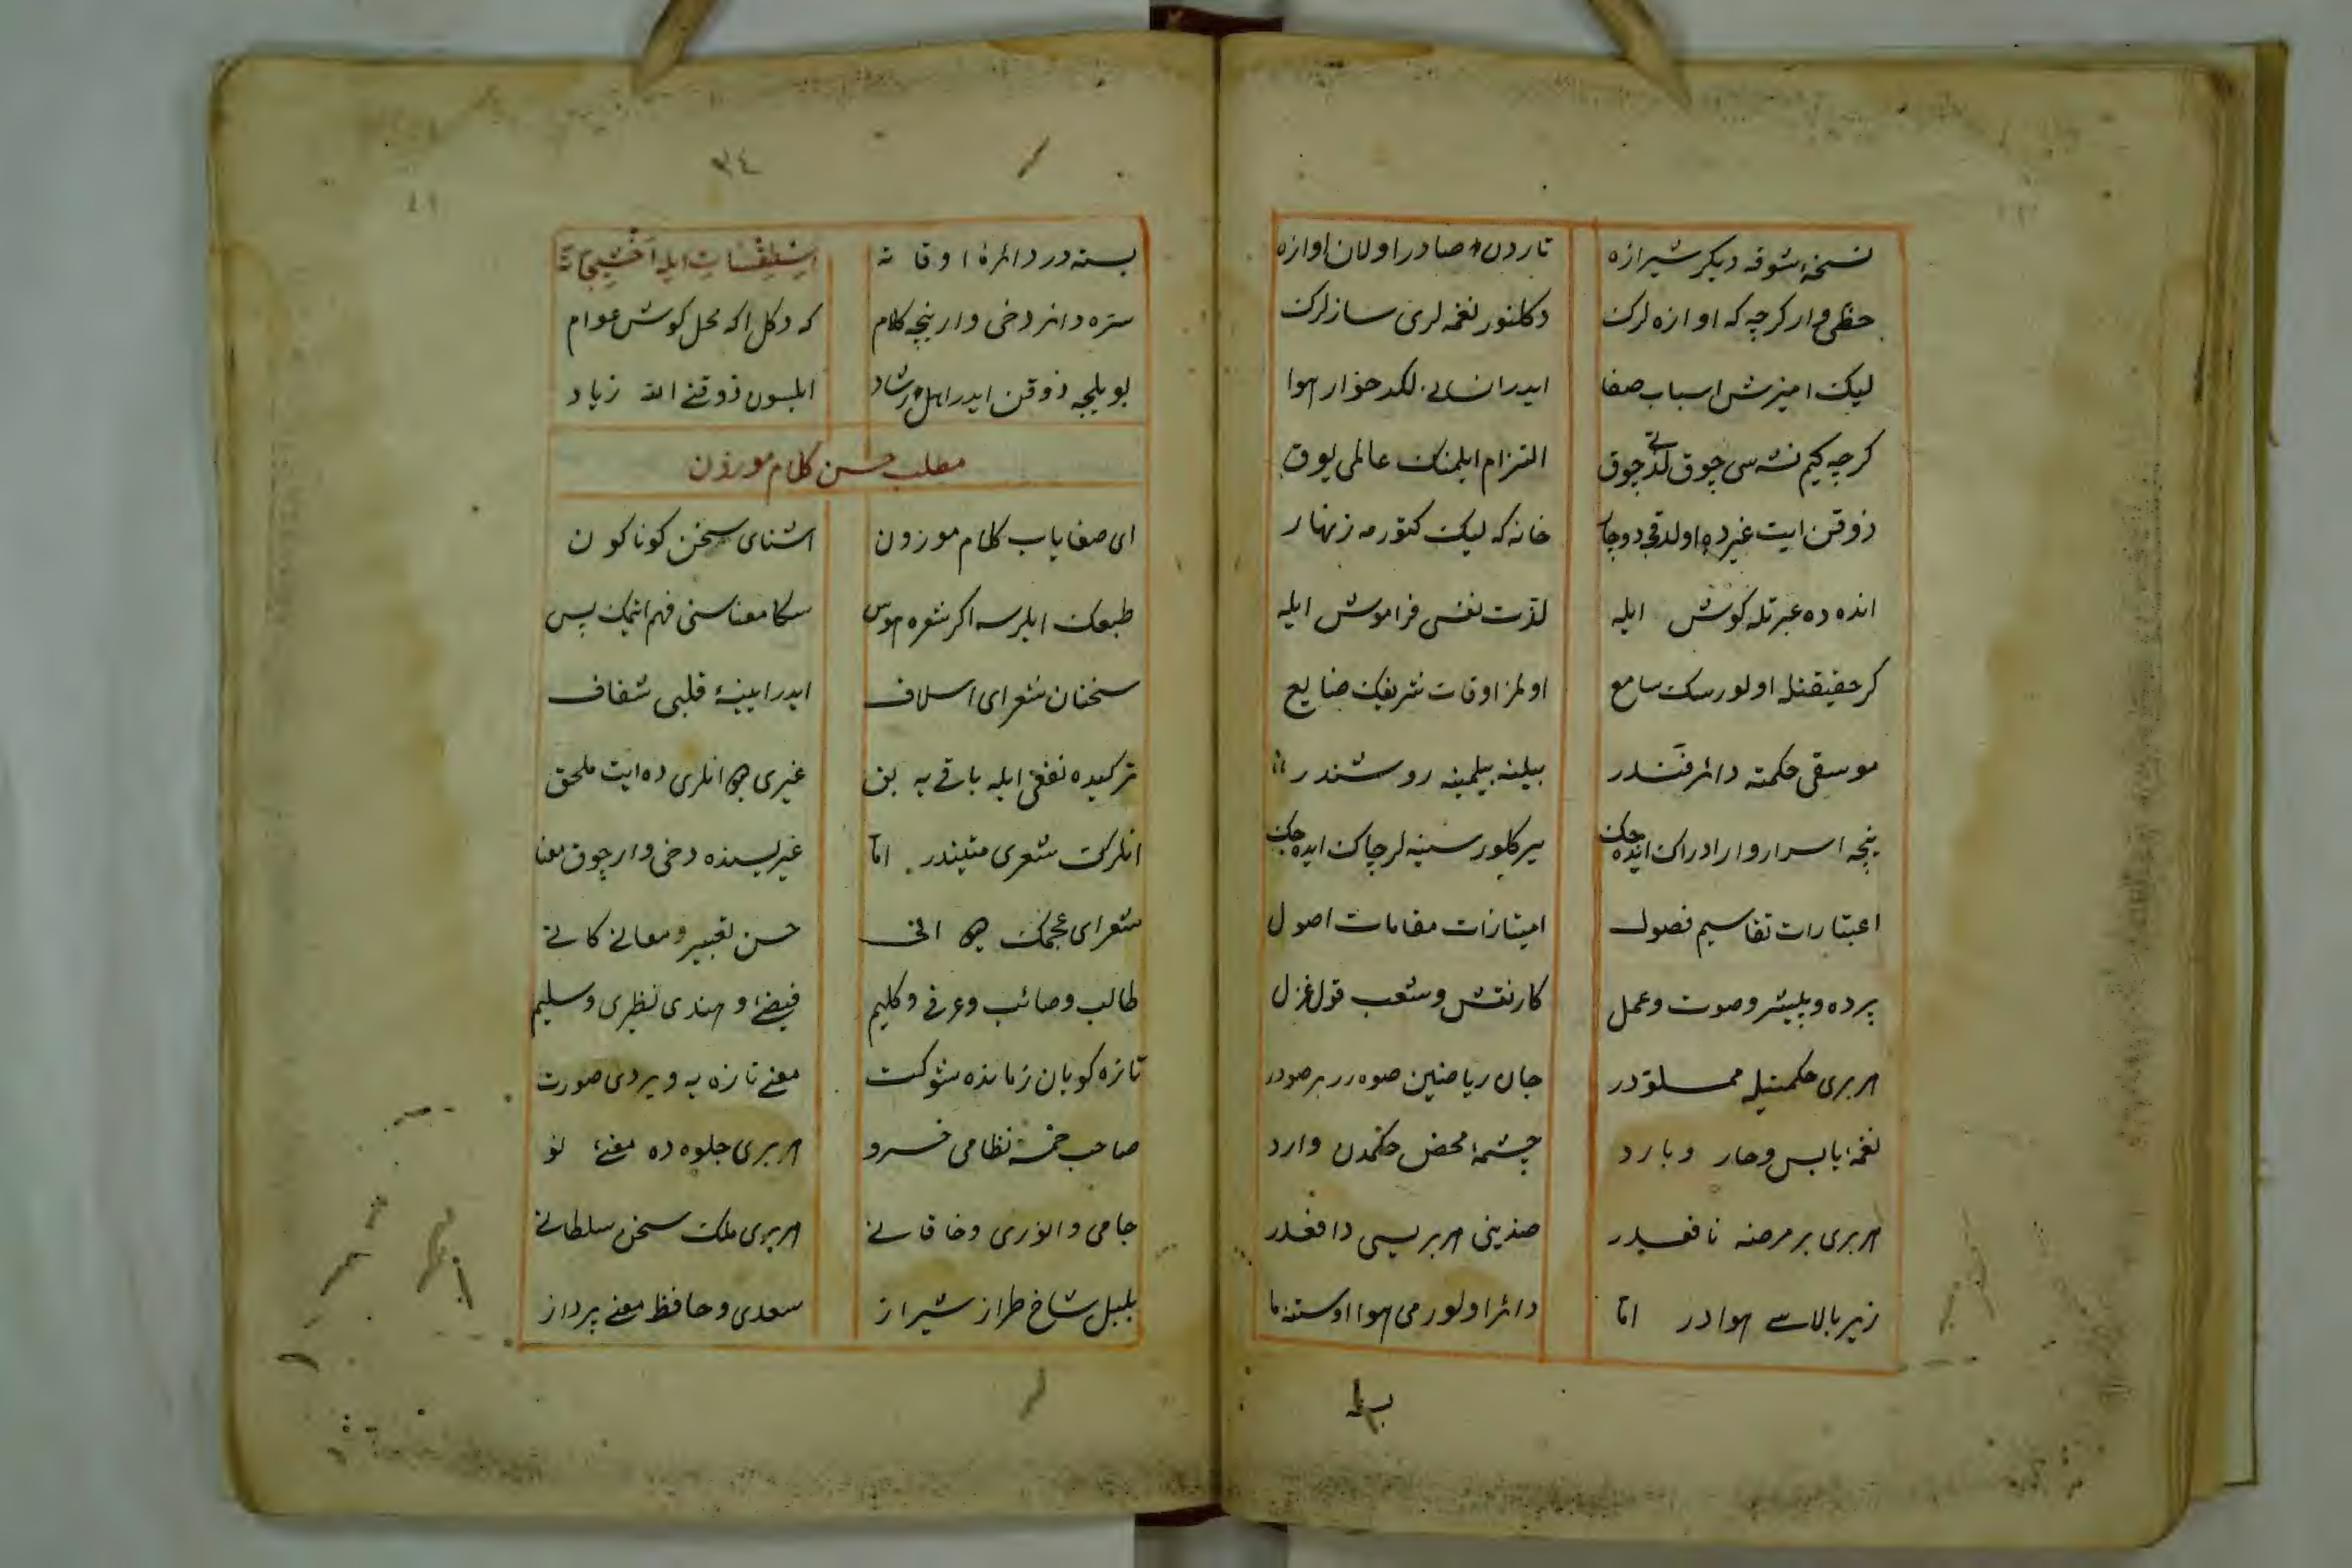 نسخۀ شوقه دیکر شیرازه تاردن صادر اولان اوازه
حظی وار کرچه که اوازه لرک دکلنور نغمه لری سازلرک
لیک امیزش اسباب صفا ایدر انسانی لکدخوار هوا
کرچه کیم نشئه سی چوق لذتی چوق التزام ایلمنک عالمی یوق
ذوقن ایت غیرده اولدقجه دوچار خانه که لیک کتورمه زنهار
انده ده عبرتله کوش ایله لذت نفسی فراموش ایله
کر حقیقتله اولورسک سامع اولمز اوقات شریفک ضایع
موسقی حکمته دائر فندر بیلنه بیلمینه روشندر
نیجه اسرار وار ادراک ایده جک یرکلور سینه لر چاک ایده جک
اعتبارات تقاسیم فصول امتیازات مقامات اصول
پرده وپیشر وصوت وعمل کار نقش وشعب قول غزل
هربری حکمتیله مملودر جان ریاضین صوه رر بر صودر
نغمۀ یابس وحار وبارد چشمۀ محض حکمدن وارد
هربری بر مرضه نافعدر ضدینی هر بریسی دافعدر
زیر بالاسی هوادر اما دائر اولورمی هوا اوستنه ما
بسته در دائرۀ اوقاته اسطقسات ایله اخشیجاته
ستره دائر دخی وار نیجه کلام که دکل اکه محل کوش عوام
بویلجه ذوقن ایدر اهل رشاد ایلسون ذوقنی الله زیاد
مطلب حسن کلام موزون
ای صفایاب کلام موزون اشنای سخن کوناکون
طبعک ایلرسه اکر شعره هوس سکا معناسنی فهم اتمک بس
سخنان شعرای اسلاف ایدر ایینۀ قلبی شفاف
ترکیده نفعی ایله باقی یه بق غیری انلری ده ایت ملحق
انلرک شعری متیندر اما غیریسنده دخی وار چوق معنا
شعرای عجمک حسن تعبیر ومعانی کانی
طالب وصائب وعرفی وکلیم فیضئ و هندی نظیری وسلیم
تازه کویان زمانده شوکت معنی تازه یه ویردی صورت
صاحب خمسه نظامی خسرو هربری جلوه ده معنئ نو
جامی وانوری وخاقانی هربری ملک سخن سلطانی
بلبل شاخ طراز شیراز سعدی وحافظ معنی پرداز